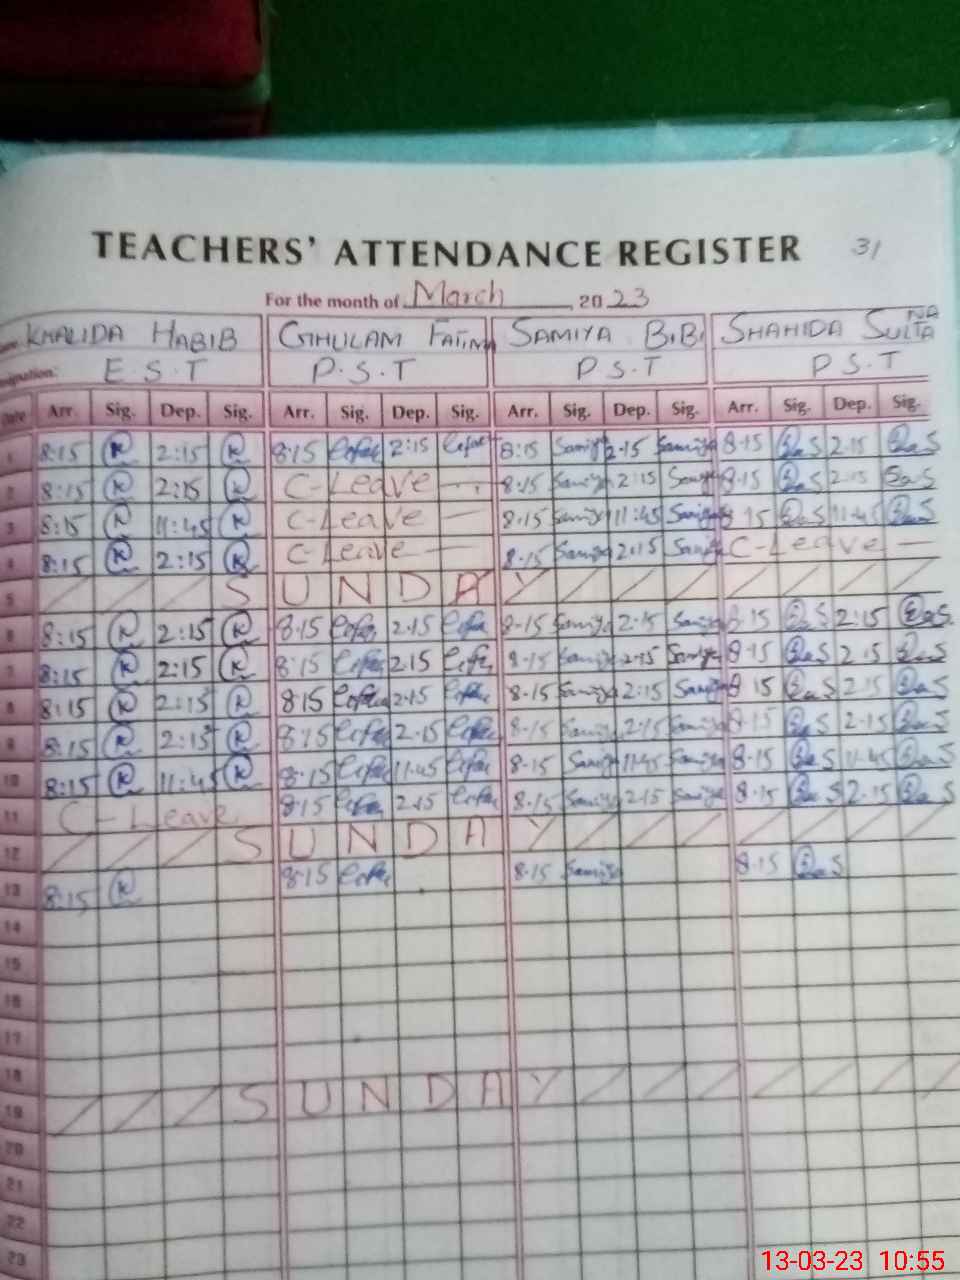 TEACHERS' ATTENDANCE REGISTER 31
For the month of March 2023
KHALIDA HABIB GHULAM FATIMA SAMIYA BIBI SHAHIDA SULTANA
E.S.T P.S.T P S.T P S.T
Date Arr. Sig. Dep. Sig. Arr. Sig. Dep. Sig. Arr. Sig. Dep. Sig. Arr. Sig. Dep. Sig.
1 8:15 K 2:15 K 8:15 2:15 8:15 Samiya 2:15 Samiya 8-15 SaS 2-15 SaS
2 8:15 K 2:15 K C-Leave — 8:15 Samiya 2:15 Samiya 8-15 SaS 2-15 SaS
3 8:15 K 11:45 K C-Leave — 8-15 Samiya 11:45 Samiya 8 15 SaS 11-45 SaS
4 8:15 K 2:15 K C-Leave — 8-15 Samiya 2:15 Samiya C-Leave —
5 SUNDAY
6 8:15 K 2:15 K 8:15 2.15 8-15 Samiya 2:15 Samiya 8.15 SaS 2:15 SaS
7 8:15 K 2:15 K 8:15 2.15 8-15 Samiya 2:15 Samiya 8-15 SaS 2 15 SaS
8 8:15 K 2:15 K 8:15 2:15 8-15 Samiya 2:15 Samiya 8 15 SaS 2 15 SaS
9 8:15 K 2:15 K 8:15 2-15 8-15 Samiya 2:15 Samiya 8-15 SaS 2-15 SaS
10 8:15 K 11:45 K 8:15 11.45 8-15 Samiya 11:45 Samiya 8-15 SaS 11-45 SaS
11 C-Leave 8:15 2.15 8-15 Samiya 2:15 Samiya 8-15 SaS 2-15 SaS
12 SUNDAY
13 8:15 K 8:15 8-15 Samiya 8-15 SaS
14
15
16
17
18
19 SUNDAY
20
21
22
23
13-03-23 10:55